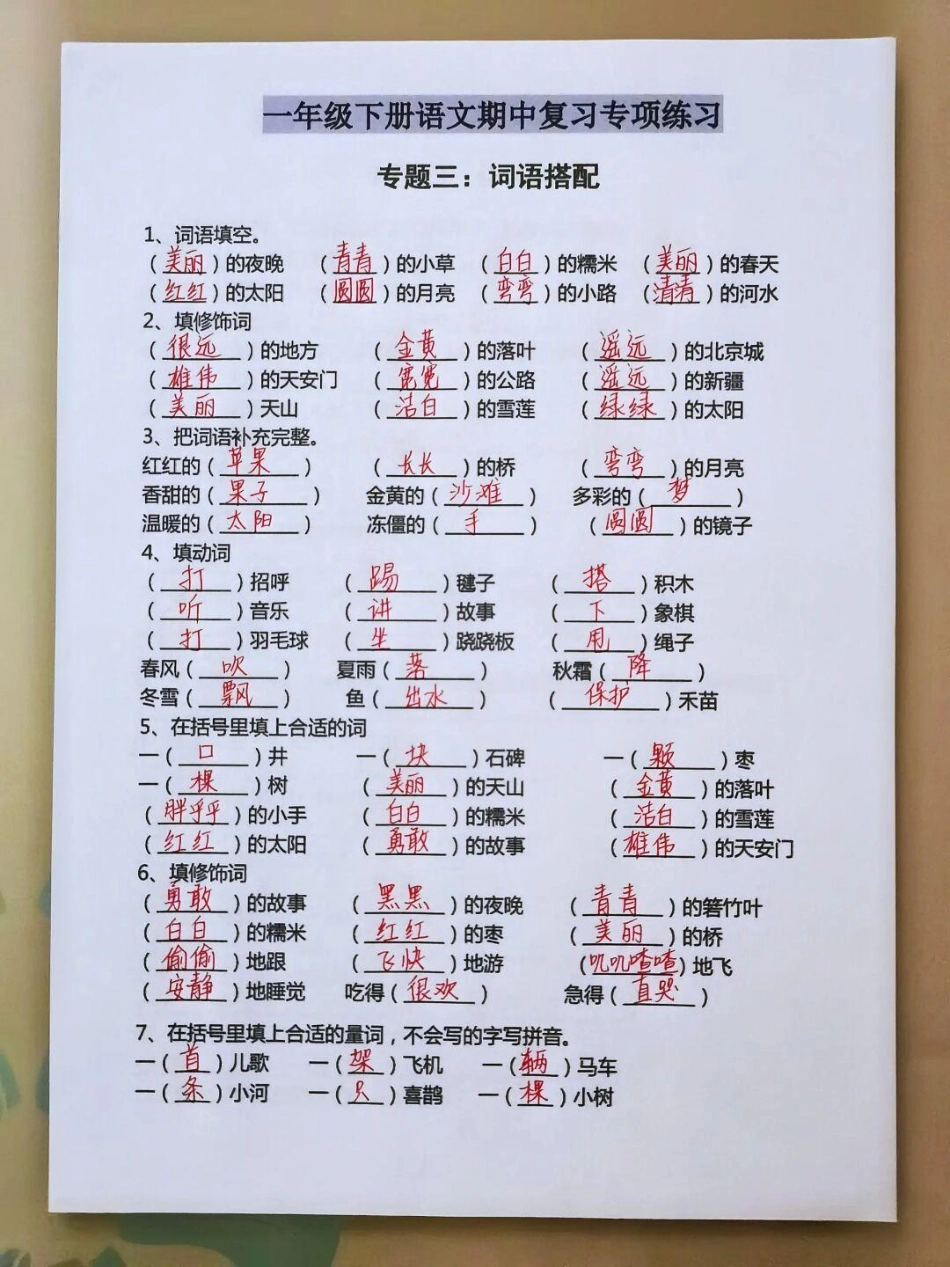 一年级下册语文期中复习专项练习
专题三：词语搭配
1、词语填空。
（美丽）的夜晚 （青青）的小草 （白白）的糯米 （美丽）的春天
（红红）的太阳 （圆圆）的月亮 （弯弯）的小路 （清清）的河水
2、填修饰词
（很远）的地方 （金黄）的落叶 （遥远）的北京城
（雄伟）的天安门 （宽宽）的公路 （遥远）的新疆
（美丽）天山 （洁白）的雪莲 （绿绿）的太阳
3、把词语补充完整。
红红的（苹果） （长长）的桥 （弯弯）的月亮
香甜的（果子） 金黄的（沙滩） 多彩的（梦）
温暖的（太阳） 冻僵的（手） （圆圆）的镜子
4、填动词
（打）招呼 （踢）毽子 （搭）积木
（听）音乐 （讲）故事 （下）象棋
（打）羽毛球 （坐）跷跷板 （甩）绳子
春风（吹） 夏雨（落） 秋霜（降）
冬雪（飘） 鱼（出水） （保护）禾苗
5、在括号里填上合适的词
一（口）井 一（块）石碑 一（颗）枣
一（棵）树 （美丽）的天山 （金黄）的落叶
（胖乎乎）的小手 （白白）的糯米 （洁白）的雪莲
（红红）的太阳 （勇敢）的故事 （雄伟）的天安门
6、填修饰词
（勇敢）的故事 （黑黑）的夜晚 （青青）的箬竹叶
（白白）的糯米 （红红）的枣 （美丽）的桥
（偷偷）地跟 （飞快）地游 （叽叽喳喳）地飞
（安静）地睡觉 吃得（很欢） 急得（直哭）
7、在括号里填上合适的量词，不会写的字写拼音。
一（首）儿歌 一（架）飞机 一（辆）马车
一（条）小河 一（只）喜鹊 一（棵）小树